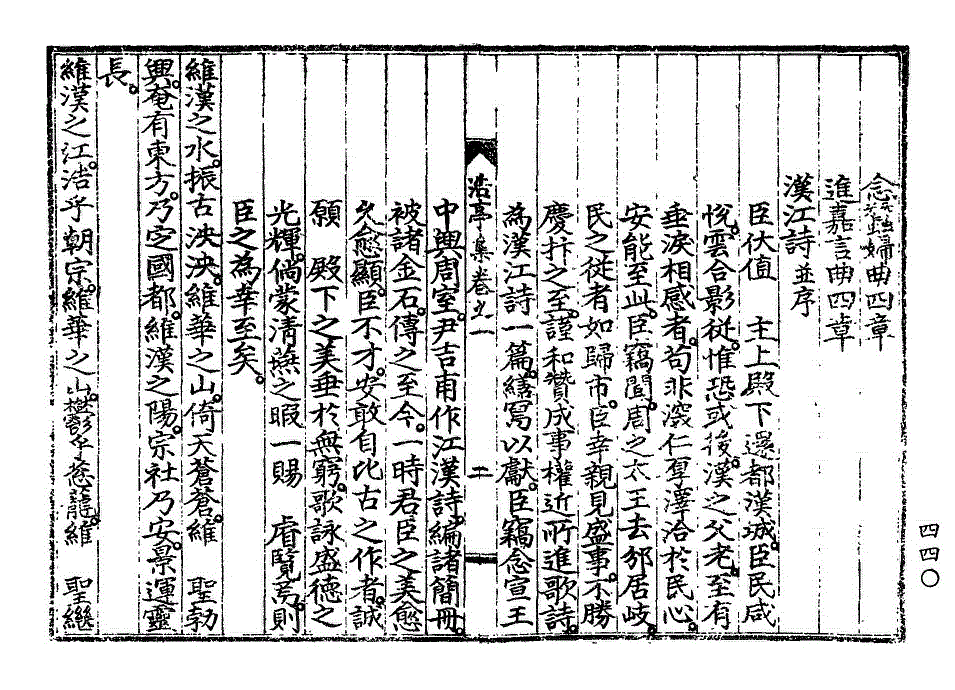 念蠶婦曲四章
進嘉言曲四章
漢江詩並序
臣伏值 主上殿下還都漢城。臣民咸
悅。雲合影從。惟恐或後。漢之父老。至有
垂淚相感者。苟非深仁厚澤洽於民心。
安能至此。臣竊聞。周之太王去邠居岐。
民之從者如歸市。臣幸親見盛事。不勝
慶抃之至。謹和贊成事權近所進歌詩。
為漢江詩一篇。繕寫以獻。臣竊念宣王
浩亭集卷之一 二
中興周室。尹吉甫作江漢詩。編諸簡冊。
被諸金石。傳之至今。一時君臣之美愈
久愈顯。臣不才。安敢自比古之作者。誠
願 殿下之美垂於無窮。歌詠盛德之
光輝。倘蒙清燕之暇一賜 睿覽焉。則
臣之為幸至矣。
維漢之水。振古泱泱。維華之山。倚天蒼蒼。維 聖勃
興。奄有東方。乃定國都。維漢之陽。宗社乃安。景運靈
長。
維漢之江。浩乎朝宗。維華之山。鬱乎葱蘢。維 聖繼
四四〇